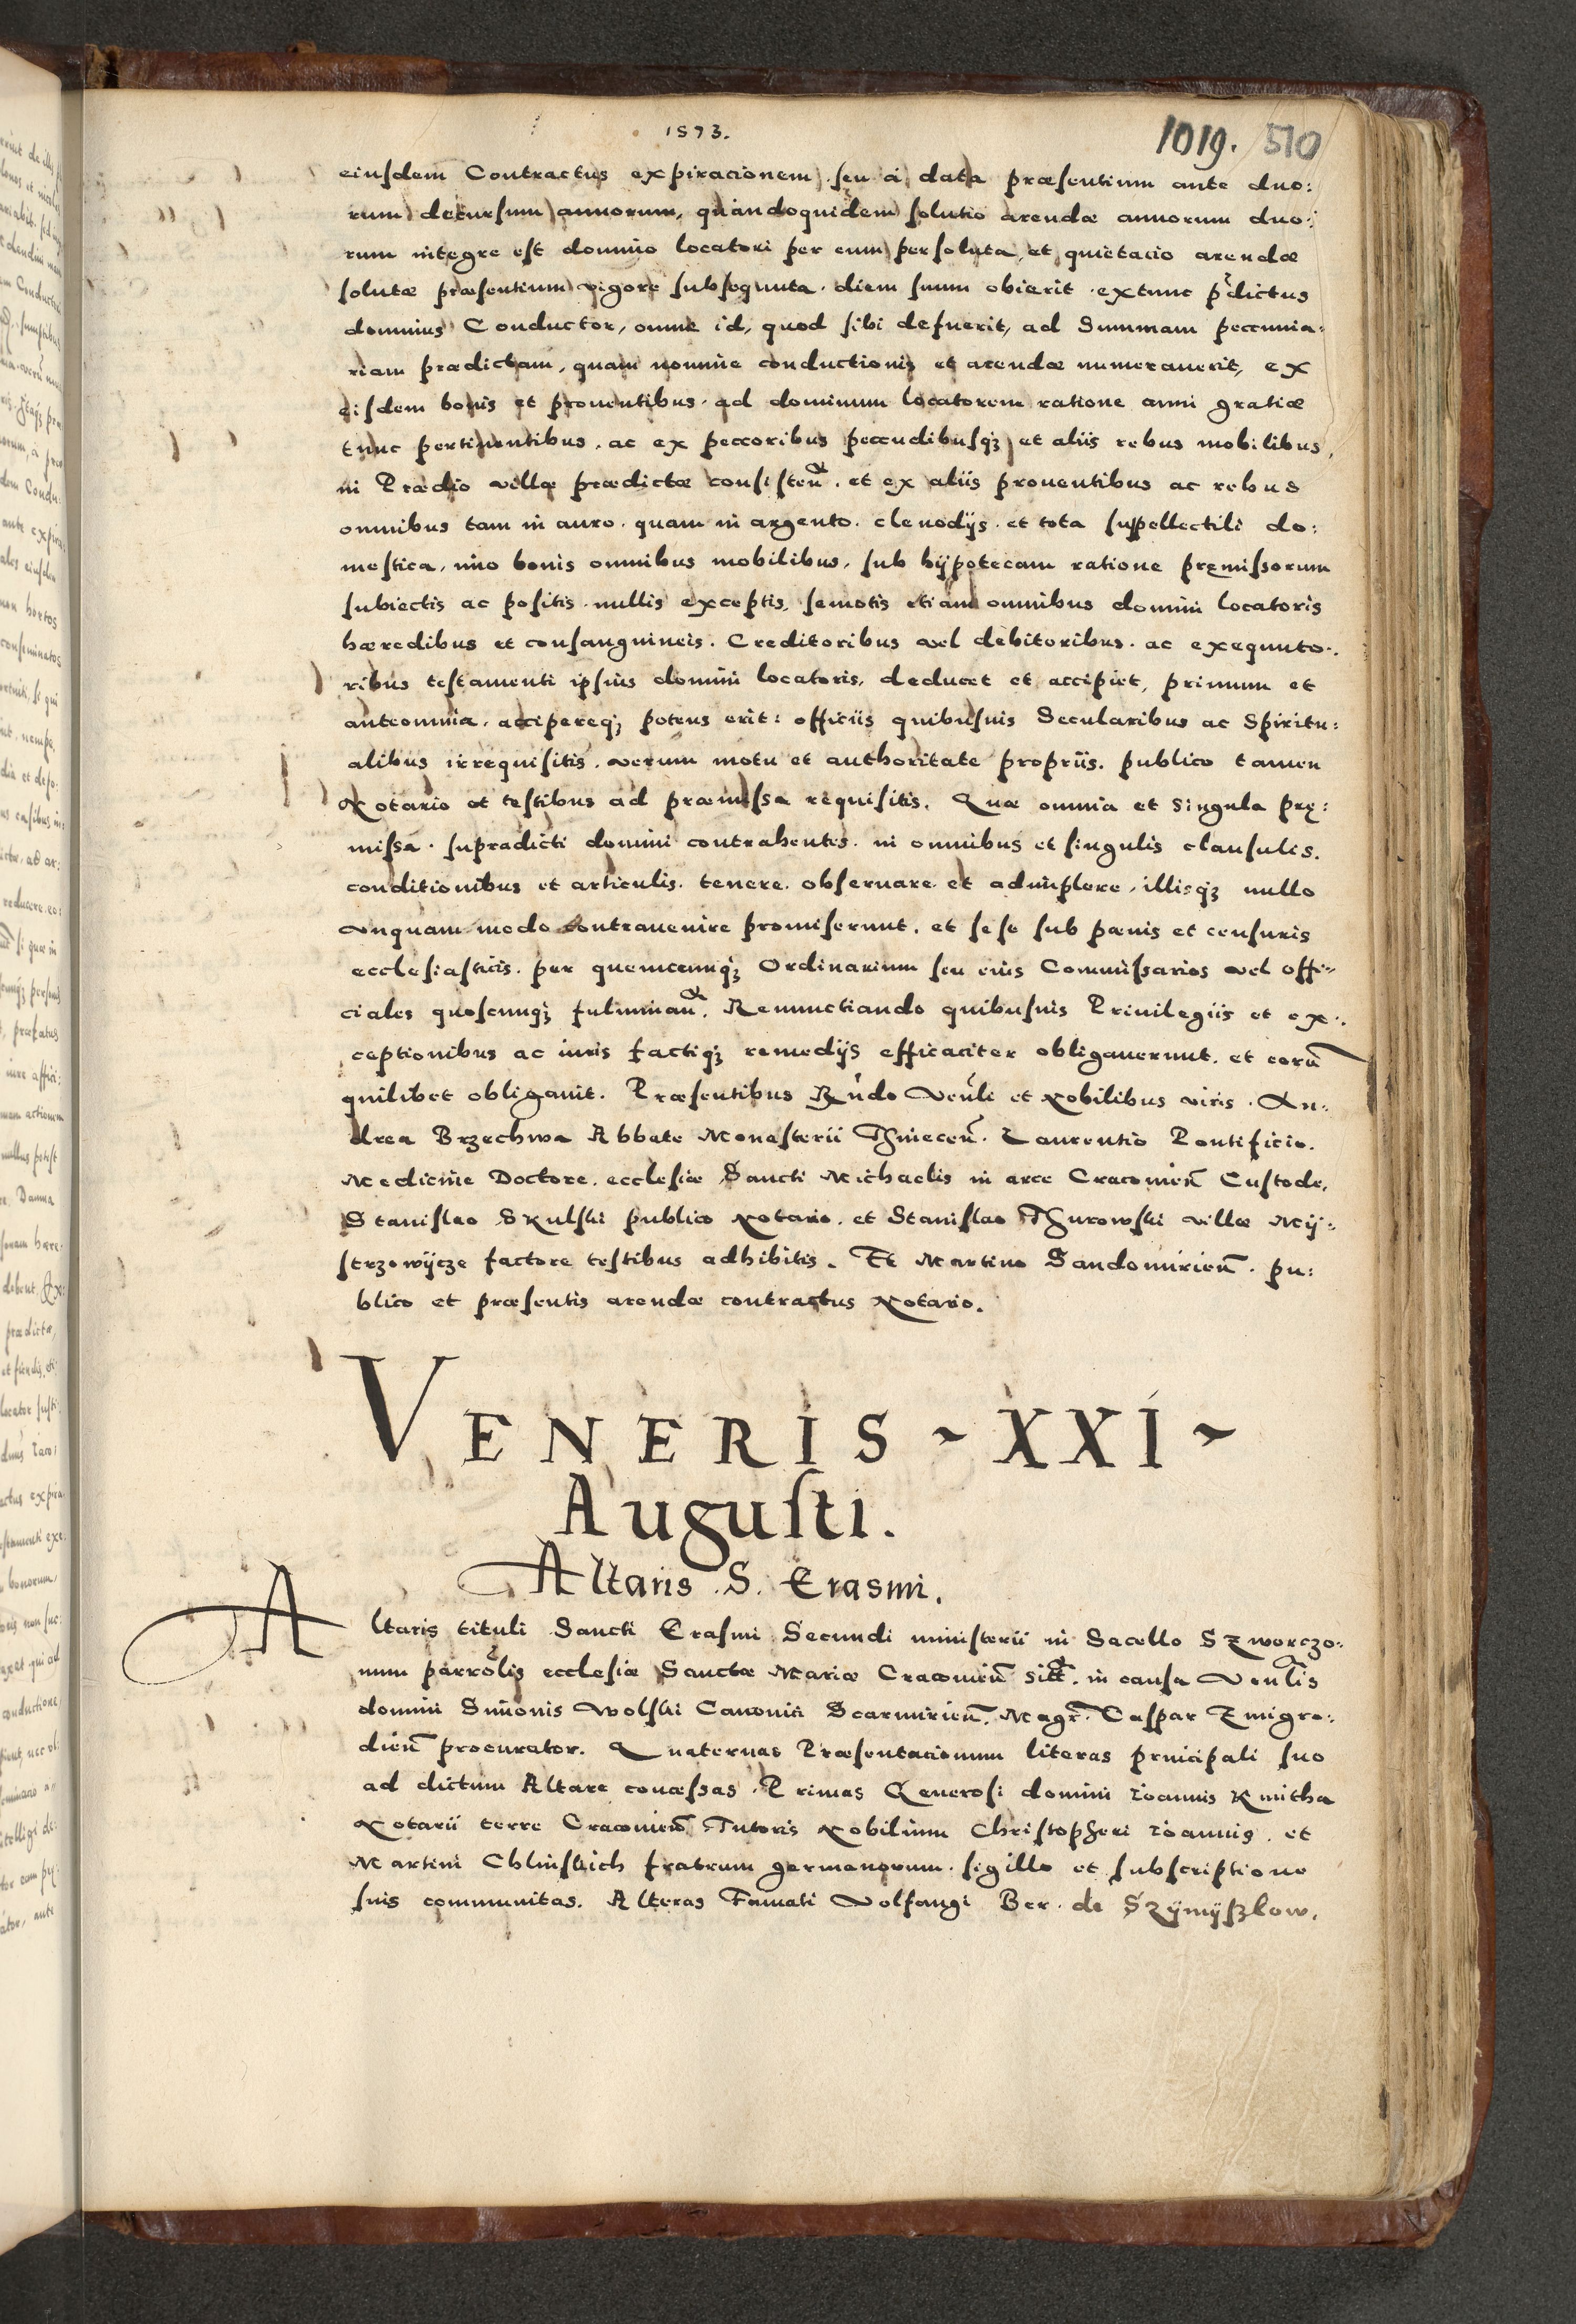 1573.
1019. 510
eiusdem Contractus expiracionem, seu a data præsentium ante duo:
rum decursum annorum, quandoquidem solutio arendæ annorum duo:
rum integre est domino locatori per eum persoluta, et quietacio arendæ
solutæ præsentium vigore subsequuta. diem suum obierit. extunc p̃dictus
dominus Conductor, omne id, quod sibi defuerit, ad Summam peccunia:
riam prædictam, quam nomine conductionis et arendæ numerauerit, ex
eisdem bonis et prouentibus. ad dominum locatorem ratione anni gratiæ
tunc pertinentibus. ac ex peccoribus peccudibusq; et aliis rebus mobilibus,
in Prædio villæ prædictæ consisteñ. et ex aliis prouentibus ac rebus
omnibus tam in auro. quam in argento. clenodijs. et tota suppellectili do:
mestica, imo bonis omnibus mobilibus, sub hÿpotecam ratione pręmissorum
subiectis ac positis. nullis exceptis, semotis etiam omnibus domini locatoris
hæredibus et consanguineis. Creditoribus vel debitoribus. ac exequuto:
ribus testamenti ipsius domini locatoris, deducet et accipiet, primum et
anteomnia. accipereq; potens erit: officiis quibusuis Secularibus ac Spiritu:
alibus irrequisitis. verum motu et authoritate propriis. publico tamen
Notario et testibus ad præmissa requisitis. Quæ omnia et singula prę:
missa. supradicti domini contrahentes. in omnibus et singulis clausulis.
conditionibus et articulis. tenere. obseruare et adimplere, illisq; nullo
vnquam modo contrauenire promiserunt. et sese sub pænis et censuris
ecclesiasticis. per quemcunq; Ordinarium seu eius Commissarios vel offi:
ciales quoscunq; fulminañ. Renunctiando quibusuis Priuilegiis et ex:
ceptionibus ac iuris factiq; remedijs efficaciter obligauerunt. et eorũ
quilibet obligauit. Præsentibus Rñdo Veñli et Nobilibus viris. An:
drea Brzechwa Abbate Monasterii Thineceñ. Laurentio Pontificio.
Medicinæ Doctore. ecclesiæ Sancti Michaelis in arce Cracouieñ Custode,
Stanislao Skulski publico Notario. et Stanislao Thurowski villæ Mÿ:
strzowÿcze factore testibus adhibitis. Et Martino Sandomirieñ. pu:
blico et præsentis arendæ contractus Notario.
VENERIS ~ XXI ~
Augusti.
Altaris S. Erasmi.
Altaris tituli Sancti Erasmi Secundi ministerii in Sacello Szworczo:
num parroĩlis ecclesiæ Sanctæ Mariæ Cracouieñ sitĩ. in causa Veñlis
domini Simonis Wolski Canonici Scarmirieñ. Magr̃. Caspar Zmigro:
dieñ procurator. Quaternas Præsentacionum literas principali suo
ad dictum Altare concessas. Primas Generosi domini Ioannis Kmitha
Notarii terre Cracouieñ Tutoris Nobilium Christopheri Ioannis. et
Martini Chlinskich fratrum germanorum. sigillo et subscriptione
suis communitas. Alteras Famati Volfangi Ber. de Szÿmÿszlow.